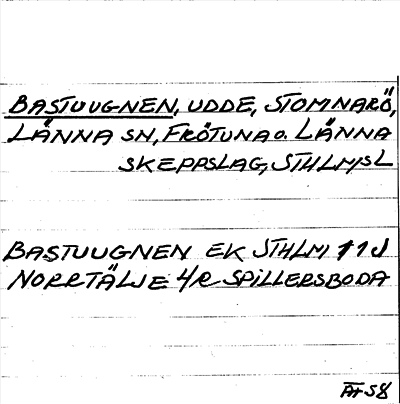 BASTUUGNEN, UDDE, STOMNARÖ,
LÄNNA SN, FRÖTUNA O. LÄNNA
SKEPPSLAG, STHLMS L
BASTUUGNEN EK STHLM 11 J
NORRTÄLJE 4/R SPILLERSBODA
58